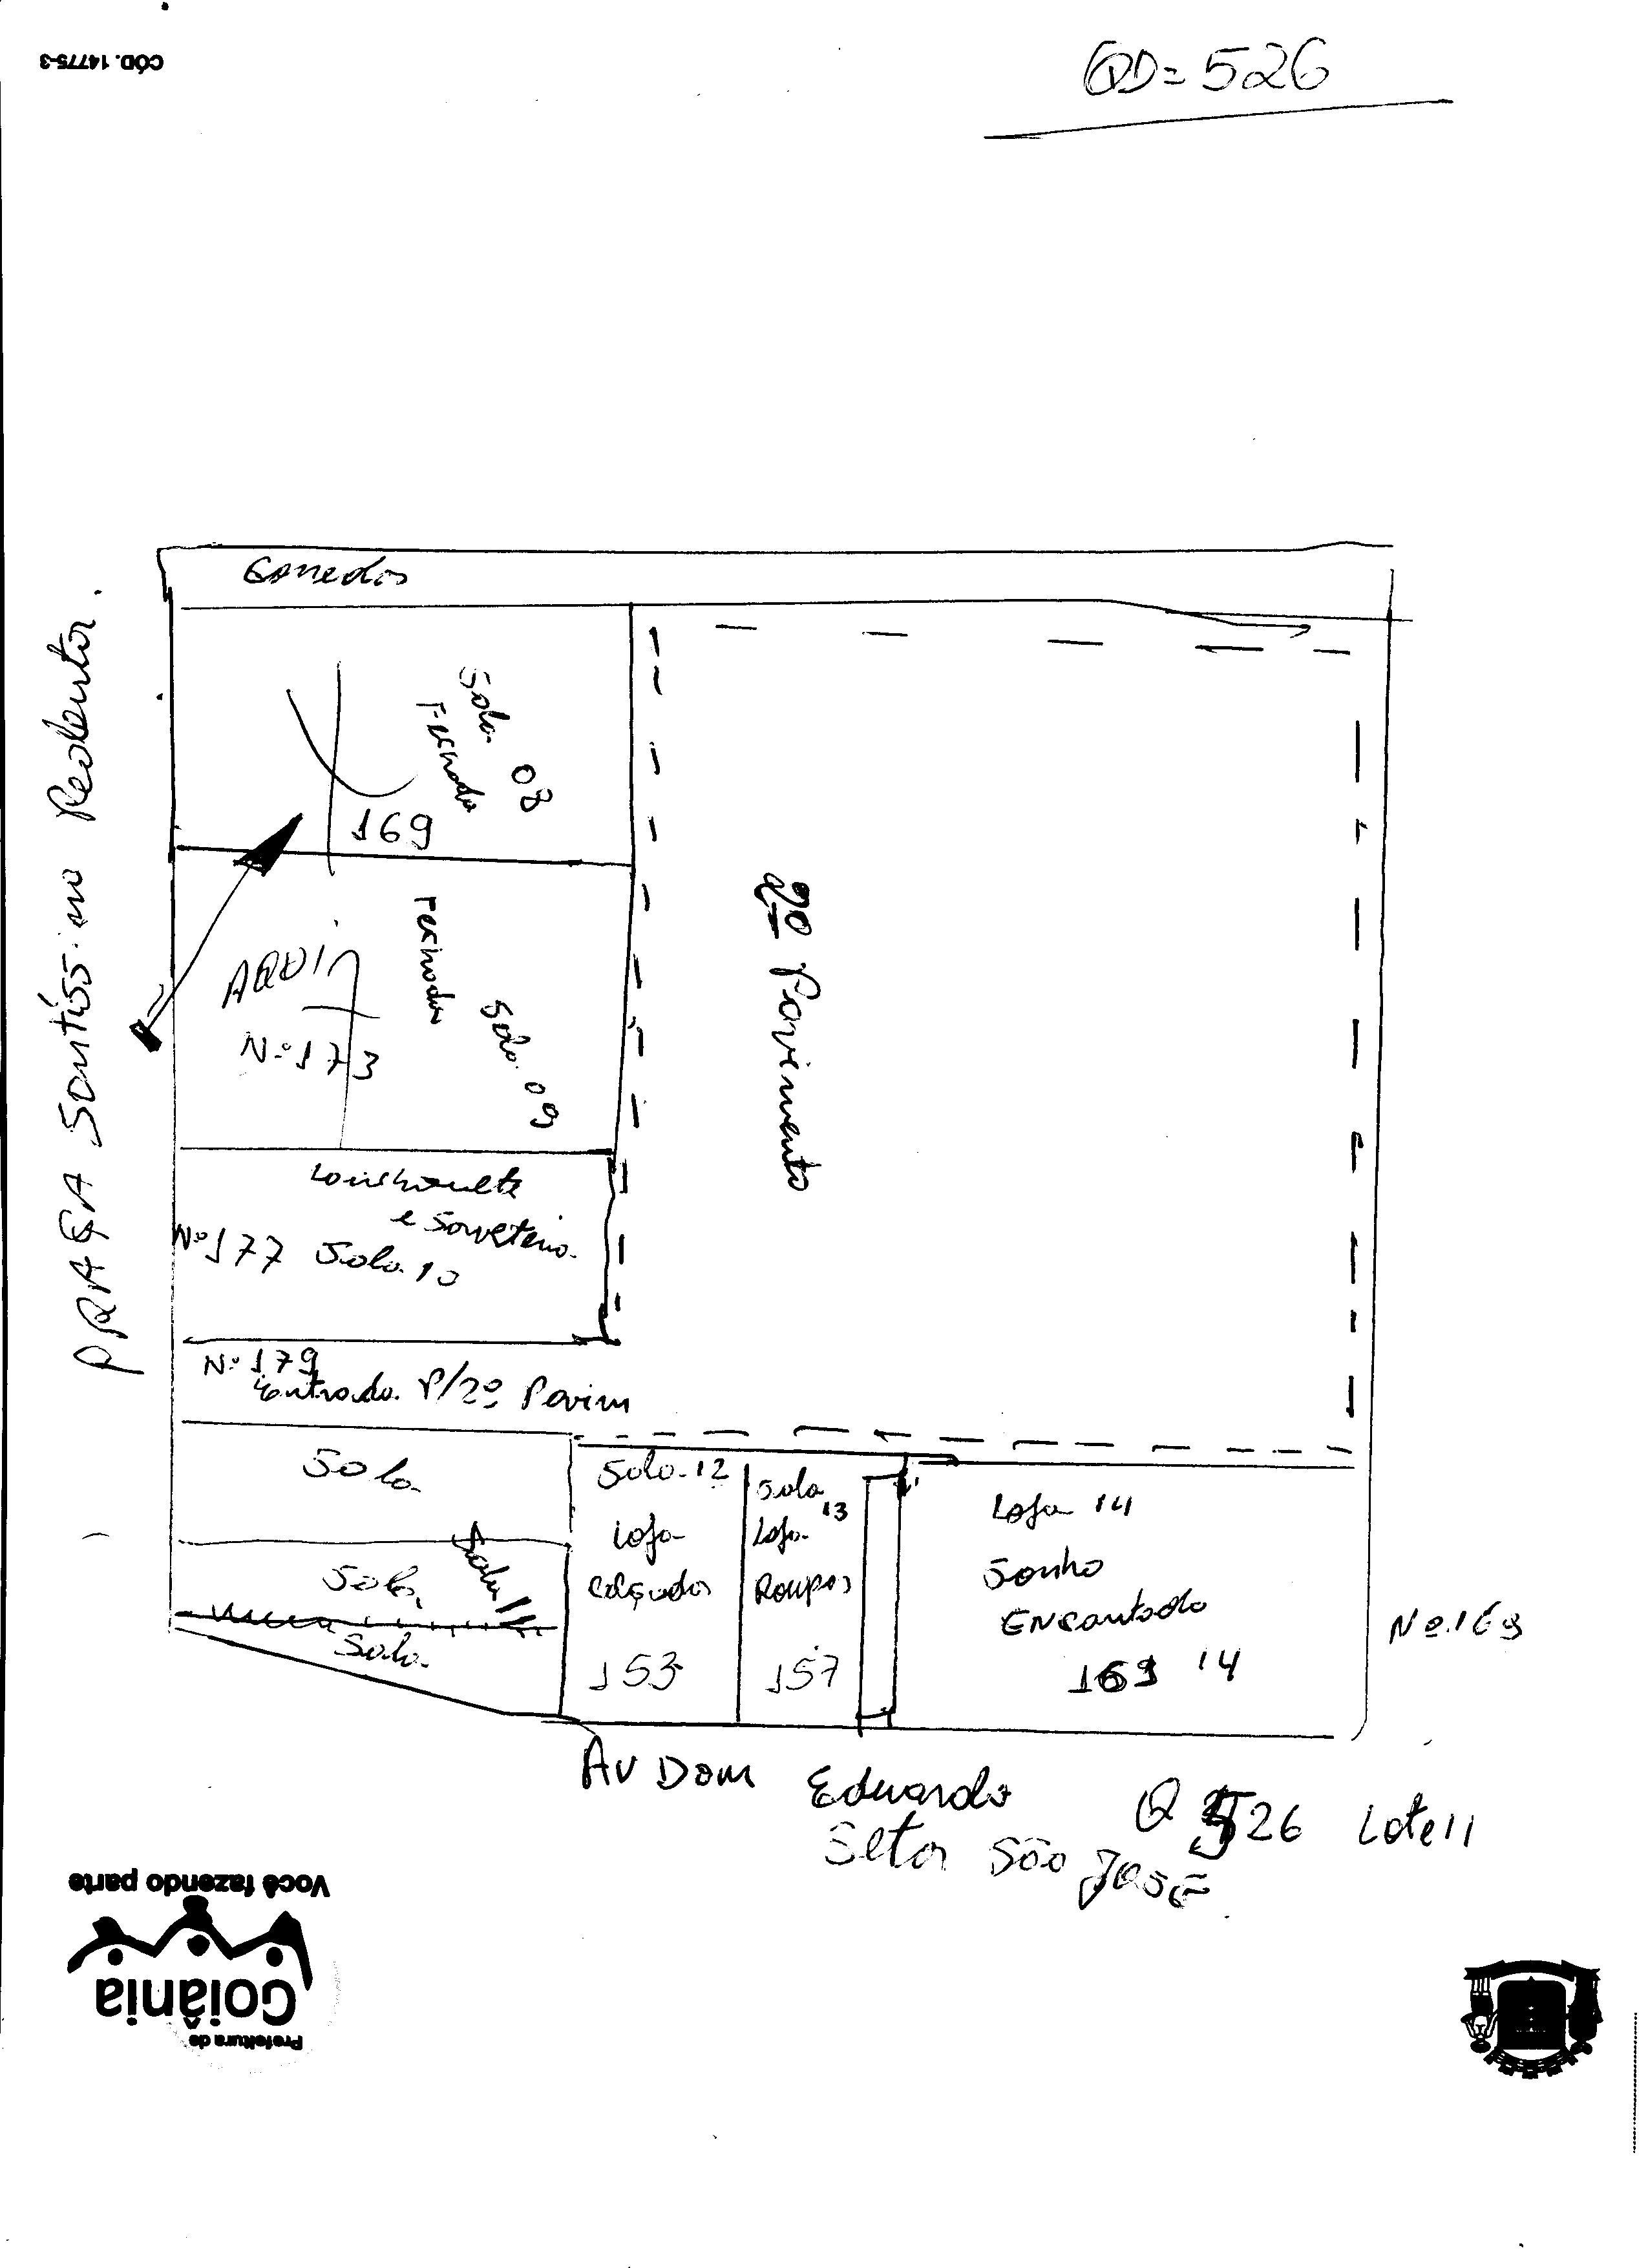 CÓD. 14775-3
QD= 526
PRAÇA Santíssimo Redentor.
Sala 08
Fechada
169
AQUI
Fechada
Sala 09
Nº 173
2º Pavimento
Lanchonete
e Sorveteria
Nº 177 Sala 10
Nº 179
Entrada P/2º Pavim
Sala
Sala
Sala 11
Sala
Sala 12
Loja
Calçados
153
Sala
13
Loja
Roupas
157
Loja 14
Sonho
Encantado
169 14
Nº 169
AV Dom Eduardo
Q 526 Lote 11
Setor São José
Você fazendo parte
Goiânia
Prefeitura de